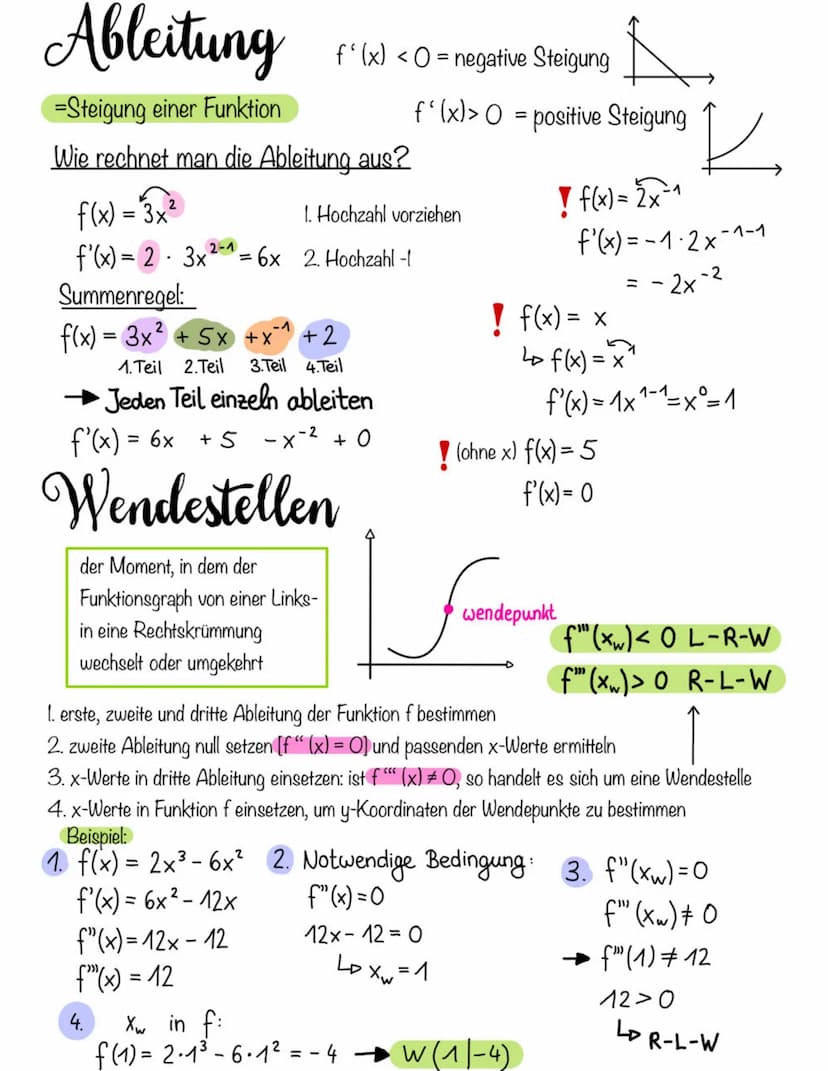 Ableitung
f‘(x) < 0 = negative Steigung
=Steigung einer Funktion
f‘(x)> 0 = positive Steigung
Wie rechnet man die Ableitung aus?
f(x) = 3x²
1. Hochzahl vorziehen
f'(x) = 2 · 3x²⁻¹ = 6x
2. Hochzahl -1
! f(x) = 2x⁻¹
f'(x) = -1 · 2x⁻¹⁻¹
= -2x⁻²
Summenregel:
f(x) = 3x² + 5x + x⁻¹ + 2
1.Teil 2.Teil 3.Teil 4.Teil
→ Jeden Teil einzeln ableiten
f'(x) = 6x + 5 - x⁻² + 0
! f(x) = x
↳ f(x) = x¹
f'(x) = 1x¹⁻¹ = x⁰ = 1
! (ohne x) f(x) = 5
f'(x) = 0
Wendestellen
der Moment, in dem der
Funktionsgraph von einer Links-
in eine Rechtskrümmung
wechselt oder umgekehrt
wendepunkt
f'''(x_w) < 0 L-R-W
f'''(x_w) > 0 R-L-W
1. erste, zweite und dritte Ableitung der Funktion f bestimmen
2. zweite Ableitung null setzen [f“(x) = 0] und passenden x-Werte ermitteln
3. x-Werte in dritte Ableitung einsetzen: ist f“‘(x) ≠ 0, so handelt es sich um eine Wendestelle
4. x-Werte in Funktion f einsetzen, um y-Koordinaten der Wendepunkte zu bestimmen
Beispiel:
1. f(x) = 2x³ - 6x²
f'(x) = 6x² - 12x
f''(x) = 12x - 12
f'''(x) = 12
2. Notwendige Bedingung:
f''(x) = 0
12x - 12 = 0
↳ x_w = 1
3. f''(x_w) = 0
f'''(x_w) ≠ 0
→ f'''(1) ≠ 12
12 > 0
↳ R-L-W
4. x_w in f:
f(1) = 2·1³ - 6·1² = -4 → W(1|-4)